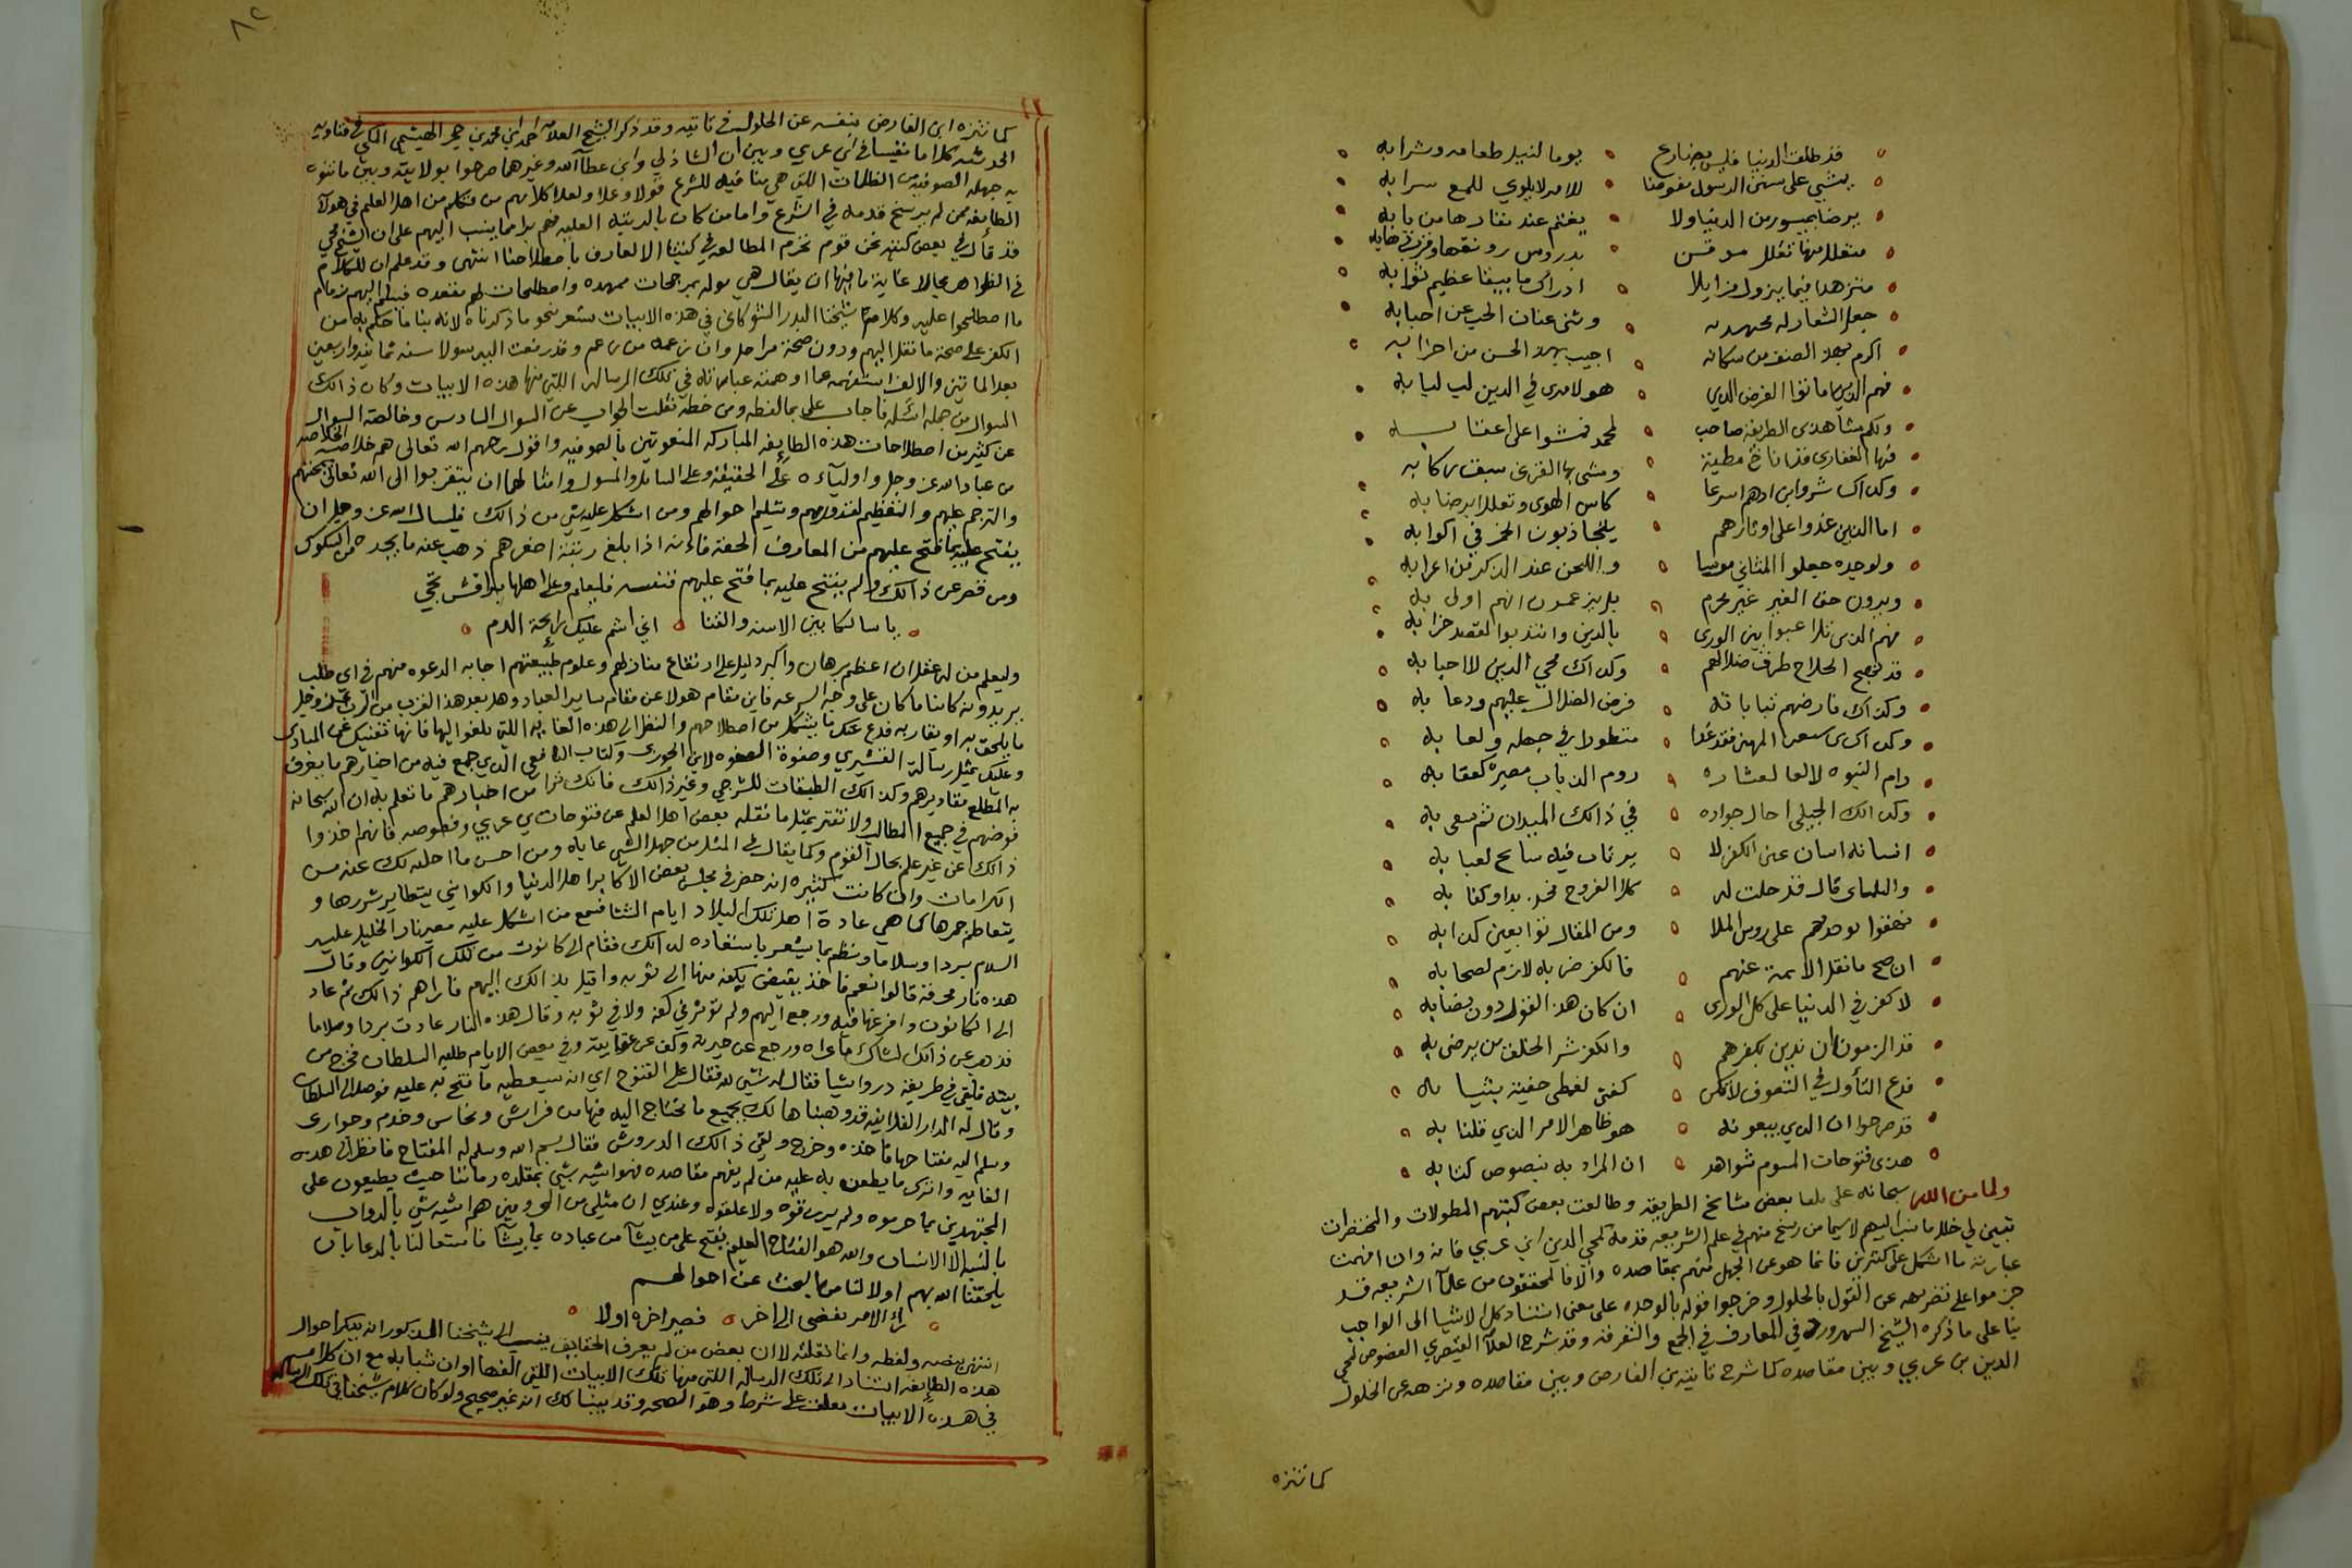 قد طلق الدنيا فليس بضارع يوما لنيل طعامه وشرابه
يمشي على سنن الرسول مفوضا للامر لا يلوي للمع سرابه
يرضا بميسور من الدنيا ولا يغتم عند نفارها من بابه
متقللا منها تقلل موقن بدروس رونقها وقرب ذهابه
متزهدا فيما يزول مزايلا ادراك ما يبقا عظيم ثوابه
جعل الشعار له محبة ربه وثنى عنان الحب عن احبابه
اكرم بهذا الصنف من سكانه احبب بهذا الحسن من احزابه
فهم الذين اصابوا الغرض الذي هو لا مرى في الدين لب لبابه
ولكم مشا هذي الطريقة صاحب لمحمد فمشوا على اعقابه
فيها الغفاري قد اناخ مطية ومشى بها القرني سبق ركابه
وكذاك بشر وابن ادهم اسرعا كاس الهوى وتعللا برضابه
اما الذين غدوا على اوتارهم يتجاذبون الخمر في اكوابه
ولوحده جعلوا المثاني مونسا واللحن عند الذكر من اعرابه
ويرون حق الغير غير محرم بل يزعمون انهم اولى به
فهم الذين تلاعبوا بين الورى بالدين وانتدبوا لقصد خرابه
قد نهج الحلاج طرق ضلالهم وكذاك محي الدين لا احيا به
وكذاك فارضهم بتاياته فرض الضلال عليهم ودعا به
وكذاك ابن سبعين المهين فقد غدا متطورا في جهله ولعابه
رام النبوه لا لعا لعثاره روم الذباب مصيره كعقابه
وكذالك الجيلي اجال جواده في ذالك الميدان ثم سعى به
انسانه انسان عين الكفر لا يرتاب فيه سابح لعبابه
والتلمساني قال قد حلت له كل الفروج فخذ بذا وكفا به
نهقوا بوحدتهم على روس الملا ومن المقال اتوا بعين كذابه
ان صح ما نقل الايمة عنهم فالكفر ضربة لازم لصحابه
لا كفر في الدنيا على كل الورى ان كان هذا القول دون نصابه
قد الزمونا ان ندين بكفرهم والكفر شر الخلق من يرضى به
فدع التأول في التصوف لا تكن كفتى لغطى جيفة بثيابه
قد صرحوا ان الذي يبغونه هو ظاهر الامر الذي قلنا به
هذي فتوحات المشوم شواهد ان المراد به نصوص كتابه
ولما من الله سبحانه على بلقا بعض مشايخ الطريقة وطالعت بعض كتبهم المطولات والمختصرات
تبين لي خلاف ما نسب اليهم لا سيما من رسخ منهم في علم الشريعه قدمه كمحي الدين ابن عربي فانه وان افهمت
عبارته ما اشكل على كثيرين فانما هو عن الجهل منهم بمقاصده والا فالمحققون من علمآ الشريعه قد
جزموا على تنزيهه عن القول بالحلول وخرجوا قوله بالوحده على معنى استناد كل الاشيا الى الواجب
بنا على ما ذكره الشيخ السهروردي في المعارف في الجمع والتفرقه وقد شرح العلآ القيصري الفصوص لمحي
الدين بن عربي وبين مقاصده كما شرح تائية بن الفارض وبين مقاصده ونزهه عن الحلول
كما نزه
٨٢
كما نزه ابن الفارض نفسه عن الحلول في تائيته وقد ذكر الشيخ العلامه احمد ابن محمد بن حجر الهيتمي المكي في فتاويه
الحديثيه كلاما نفيسا في ابن عربي وبين ان الشاذلي وابن عطآ الله وغيرهما صرحوا بولايته وبين ما تفوه
به جهلة الصوفيه من الظلمات اللتي هي منافيه للشرع قولا وعلا ولعل كلام من تكلم من اهل العلم في هولآ
الطائفه ممن لم يرسخ قدمه في الشرع واما من كان بالرتبة العليه فهم برا مما ينسب اليهم على ان الشيخ محي
قد قال في بعض كتبه نحن قوم نحرم المطالعه في كتبنا الا لعارف باصطلاحنا انتهى وقد علم ان للكلام
في الظواهر مجالا غاية ما فيها ان يقال هي موله بمرجحات ممهده واصطلحات لهم مقعده فيسلم اليهم زمام
ما اصطلحوا عليه وكلام شيخنا البدر الشوكاني في هذه الابيات يشعر بنحو ما ذكرناه لانه بنا ما حكم به من
الكفر على صحة ما نقل اليهم ودون صحة مراحل وان زعمه من زعم وقد رفعت اليه سولا سنه ثمانيه واربعين
بعد الماتين والالف استفهمه عما اوهمته عباراته في تلك الرساله اللتي منها هذه الابيات وكان ذالك
السوال من جمله اسئله فاجاب على بما لفظه ومن خطه نقلت الجواب عن السوال السادس وخالصة السوال
عن كثير من اصطلاحات هذه الطايفه المباركه المنعوتين بالصوفيه واقول رحمهم الله تعالى هم خلاصة الخلاصه
من عباد الله عز وجل واولياءه على الحقيقه وعلى السايل والمسول وامثالهما ان يتقربوا الى الله تعالى بمحبتهم
والترحم عليهم والتعظيم لقدرهم وتسليم احوالهم ومن اشكل عليه شي من ذالك فليسال الله عز وجل ان
يفتح عليه بما فتح عليهم من المعارف الحقه فاءنه اذا بلغ رتبة اصغرهم ذهب عنه ما يجده من الشكوك
ومن قصر عن ذالك ولم يفتح عليه بما فتح عليهم فنفسه فليلم وعلى اهلها براقش تجني
يا سالكا بين الاسنه والقنا اني اشم عليك رايحة الدم
وليعلم من له عقل ان اعظم برهان واكبر دليل على ارتفاع منازلهم وعلو مرتبتهم اجابه الدعوه منهم في اي مطلب
يريدونه كاينا ما كان على وجه السرعه فاين مقام هولا عن مقام ساير العباد وهل بعد هذا القرب من الرب عز وجل
ما يلحق به او يقاربه فدع عنك ما يشكل من اصطلاحهم والنظر الى هذه الغايه اللتي بلغوا اليها فانها تغنيك عن المبادي
وعليك بمثل رسالة القشيري وصفوة الصفوه لابن الجوزي وكتاب اليافعي الذي جمع فيه من اخبارهم ما يعرف
به المطلع مقاديرهم وكذالك الطبقات للشرجي وغير ذالك فانك ترا من اخبارهم ما تعلم به ان الله سبحانه
فوضهم في جميع المطالب ولا تغتر بمثل ما نقله بعض اهل العلم عن فتوحات بن عربي وفصوصه فانهم اخذوا
ذالك عن غير علم بحال القوم وكما يقال في المثل من جهل الشي عابه ومن احسن ما احليه لك عنه من
الكرامات وان كانت كثيره انه حضر في مجلس بعض الاكابر اهل الدنيا والكوانين يتطاير شررها و
يتعاظم جمرها كما هي عادة اهل تلك البلاد ايام الشتا فسمع من اشكل عليه مصير نار الخليل عليه
السلام بردا وسلاما ونظم بما يشعر باستبعاده لذالك فقام الى كانون من تلك الكوانين وقال
هذه نار محرقة قالوا نعم فاخذ يقبض بكفه منها الى ثوبه واقبل بذالك اليهم فاراهم ذالك ثم عاد
الى الكانون وافرغها فيه ورجع اليهم ولم تؤثر في كفه ولا في ثوبه وقال هذه النار عادت بردا وسلاما
فذهب عن ذالك الشاك ما عراه ورجع عن حيرته وكف عن غوايته وفي بعض الايام طلبه السلطان فخرج من
بيته فلقي في طريقه درواشيا فقال له شي لله فقال على الفتوح اي انه سيعطيه ما فتح به عليه فوصل الى السلطان
وقال له الدار الفلانيه قد وهبناها لك بجميع ما يحتاج اليه فيها من فراش ونحاس وخدم وجواري
وسلم اليه مفتاحها فاخذه وخرج ولقي ذالك الدرويش فقال بسم الله وسلم له المفتاح فانظر الى هذه
الغايه واترك ما يطعن به عليه من لم يفهم مقاصده فهو اشبه بشي بمقلده زماننا حيث يطعنون على
المجتهدين بما حرموه ولم يرزقوه ولا عقلوه وعندي ان مثلي من المحرومين هم اشبه شي بالدواب
بالنسبه الا الانسان والله هو الفتاح العليم يفتح على من يشآ من عباده بما يشآ فاستعالنا بالدعا بان
يلحقنا الله بهم اولا لنا من البحث عن احوالهم
راى الامر يفضي الى اخر فصير اخره اولا
انتهى بنصه ولفظه وانما نقلته لاان بعض من لم يعرف الحقايق ينسب الى شيخنا المذكور انه ينكر احوال
هذه الطايفه استنادا الى تلك الرساله اللتي منها تلك الابيات اللتي الفها اوان شبابه مع ان كلامه
في هذه الابيات معلق على شرط وهو الصحه وقد بينا لك انه غير صحيح ولو كان كلام شيخنا في تلك الرساله